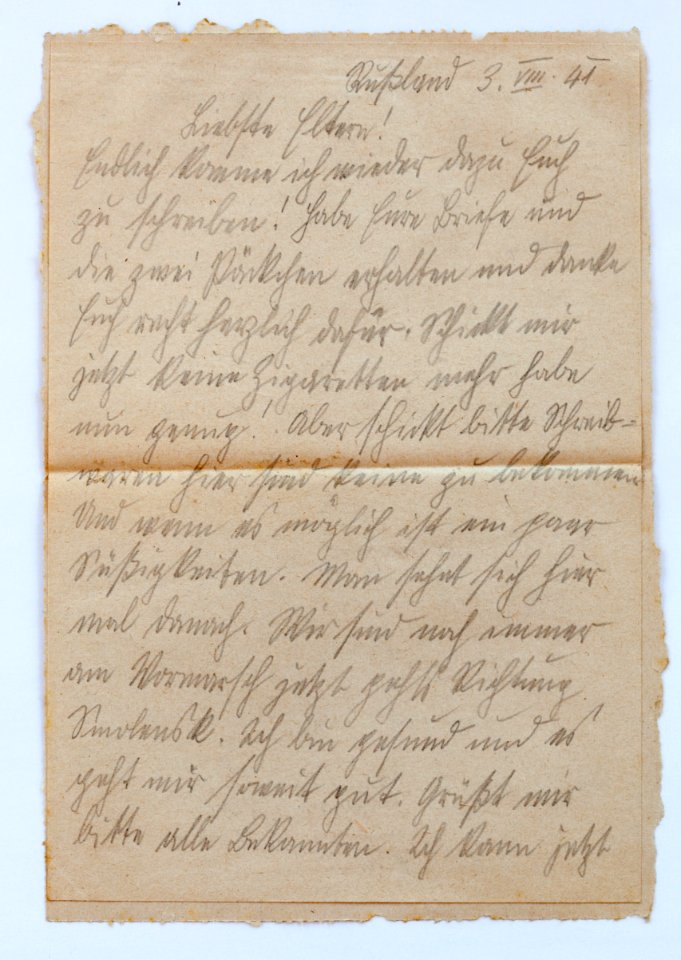 Rußland 3. VIII. 41
Liebste Eltern!
Endlich komme ich wieder dazu Euch
zu schreiben! Habe Eure Briefe und
die zwei Päckchen erhalten und danke
Euch recht herzlich dafür. Schickt mir
jetzt keine Zigaretten mehr habe
nun genug! Aber schickt bitte Schreib=
waren hier sind keine zu bekommen
Und wenn es möglich ist ein paar
Süßigkeiten. Man sehnt sich hier
mal danach. Wir sind noch immer
am Vormarsch jetzt gehts Richtung
Smolensk. Ich bin gesund und es
geht mir soweit gut. Grüßt mir
bitte alle Bekannten. Ich kann jetzt